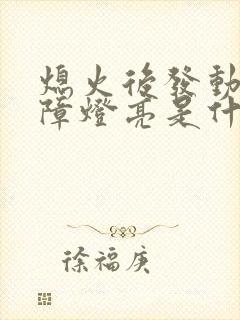 熄火後發動
障燈亮是什
徐福庚